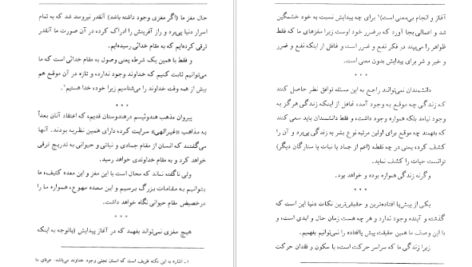 حال مغز ما (اگر مغزی وجود داشته باشد) آنقدر نیرومند شد که به تمام
اسرار دنیا پی‌برد و راز آفرینش را ادراک کرده در آن صورت ما آنقدر
ترقی کرده‌ایم که به مقام خدائی رسیده‌ایم.
و فقط با همین یک شرط یعنی وصول به مقام خدائی است که ما
می‌توانیم ثابت کنیم که خداوند وجود ندارد و تازه در آن موقع هم
بیش از همه وقت خداوند را می‌شناسیم زیرا خود، خدا هستیم.
* * *
پیروان مذهب هندوئیسم در هندوستان قدیم که اعتقاد آنان بعداً
به مذاهب سرایت کرده دارای همین نظریه بودند. آنها
می‌گفتند که انسان از مقام جمادی و نباتی و حیوانی به تدریج ترقی
خواهد کرد و به مقام خداوندی خواهد رسید.
ولی ناگفته نماند که محال است با این مغز و این معده کثیف، ما
بتوانیم به مقامات بزرگ برسیم و این معده ما را
درحضیض مقام حیوانی نگاه خواهد داشت.
* * *
هیچ مغزی نمی‌تواند بفهمد که در آغاز پیدایش (باتوجه به اینکه
۱ـ اشاره به این نکته ظریف است که انسان تجلی وجود خداوند می‌باشد.
آغاز و انجام بی‌معنی است) برای چه پیدایش نسبت به خود خشمگین
شد و اعمالی بجا آورد که برضرر خود اوست زیرا مغزهای ما که فقط
ظواهر را می‌بیند در فکر نفع و ضرر است و غافل از اینکه نفع و ضرر
و خیر و شر برای پیدایش بدون معنی است.
* * *
دانشمندان نمی‌توانند راجع به این مسئله توافق نظر حاصل کنند
که زندگی چه موقع به وجود آمد، غافل از اینکه زندگی هرگز به
وجود نیامد بلکه همواره وجود داشته، و فقط دانشمندان باید سعی کنند
که بفهمند چه موقع برای اولین مرتبه نوع بشر به زندگی پی‌برد و آن را
کشف کرده یعنی در چه نقطه (اعم از جماد یا نبات یا ستارگان دیگر)
توانست حیات را کشف نماید.
وگرنه زندگی همواره بوده و خواهد بود.
* * *
یکی از پیش‌پا افتاده‌ترین و حقیقی‌ترین نکات دنیا این است که
گذشته و آینده وجود ندارد و هر چه هست زمان حال و ابدی است، و
با این وصف ما همین حقیقت پیش پاافتاده را نمی‌توانیم بفهمیم.
زیرا زندگی ما که سراسر حرکت است، با سکون و فقدان حرکت